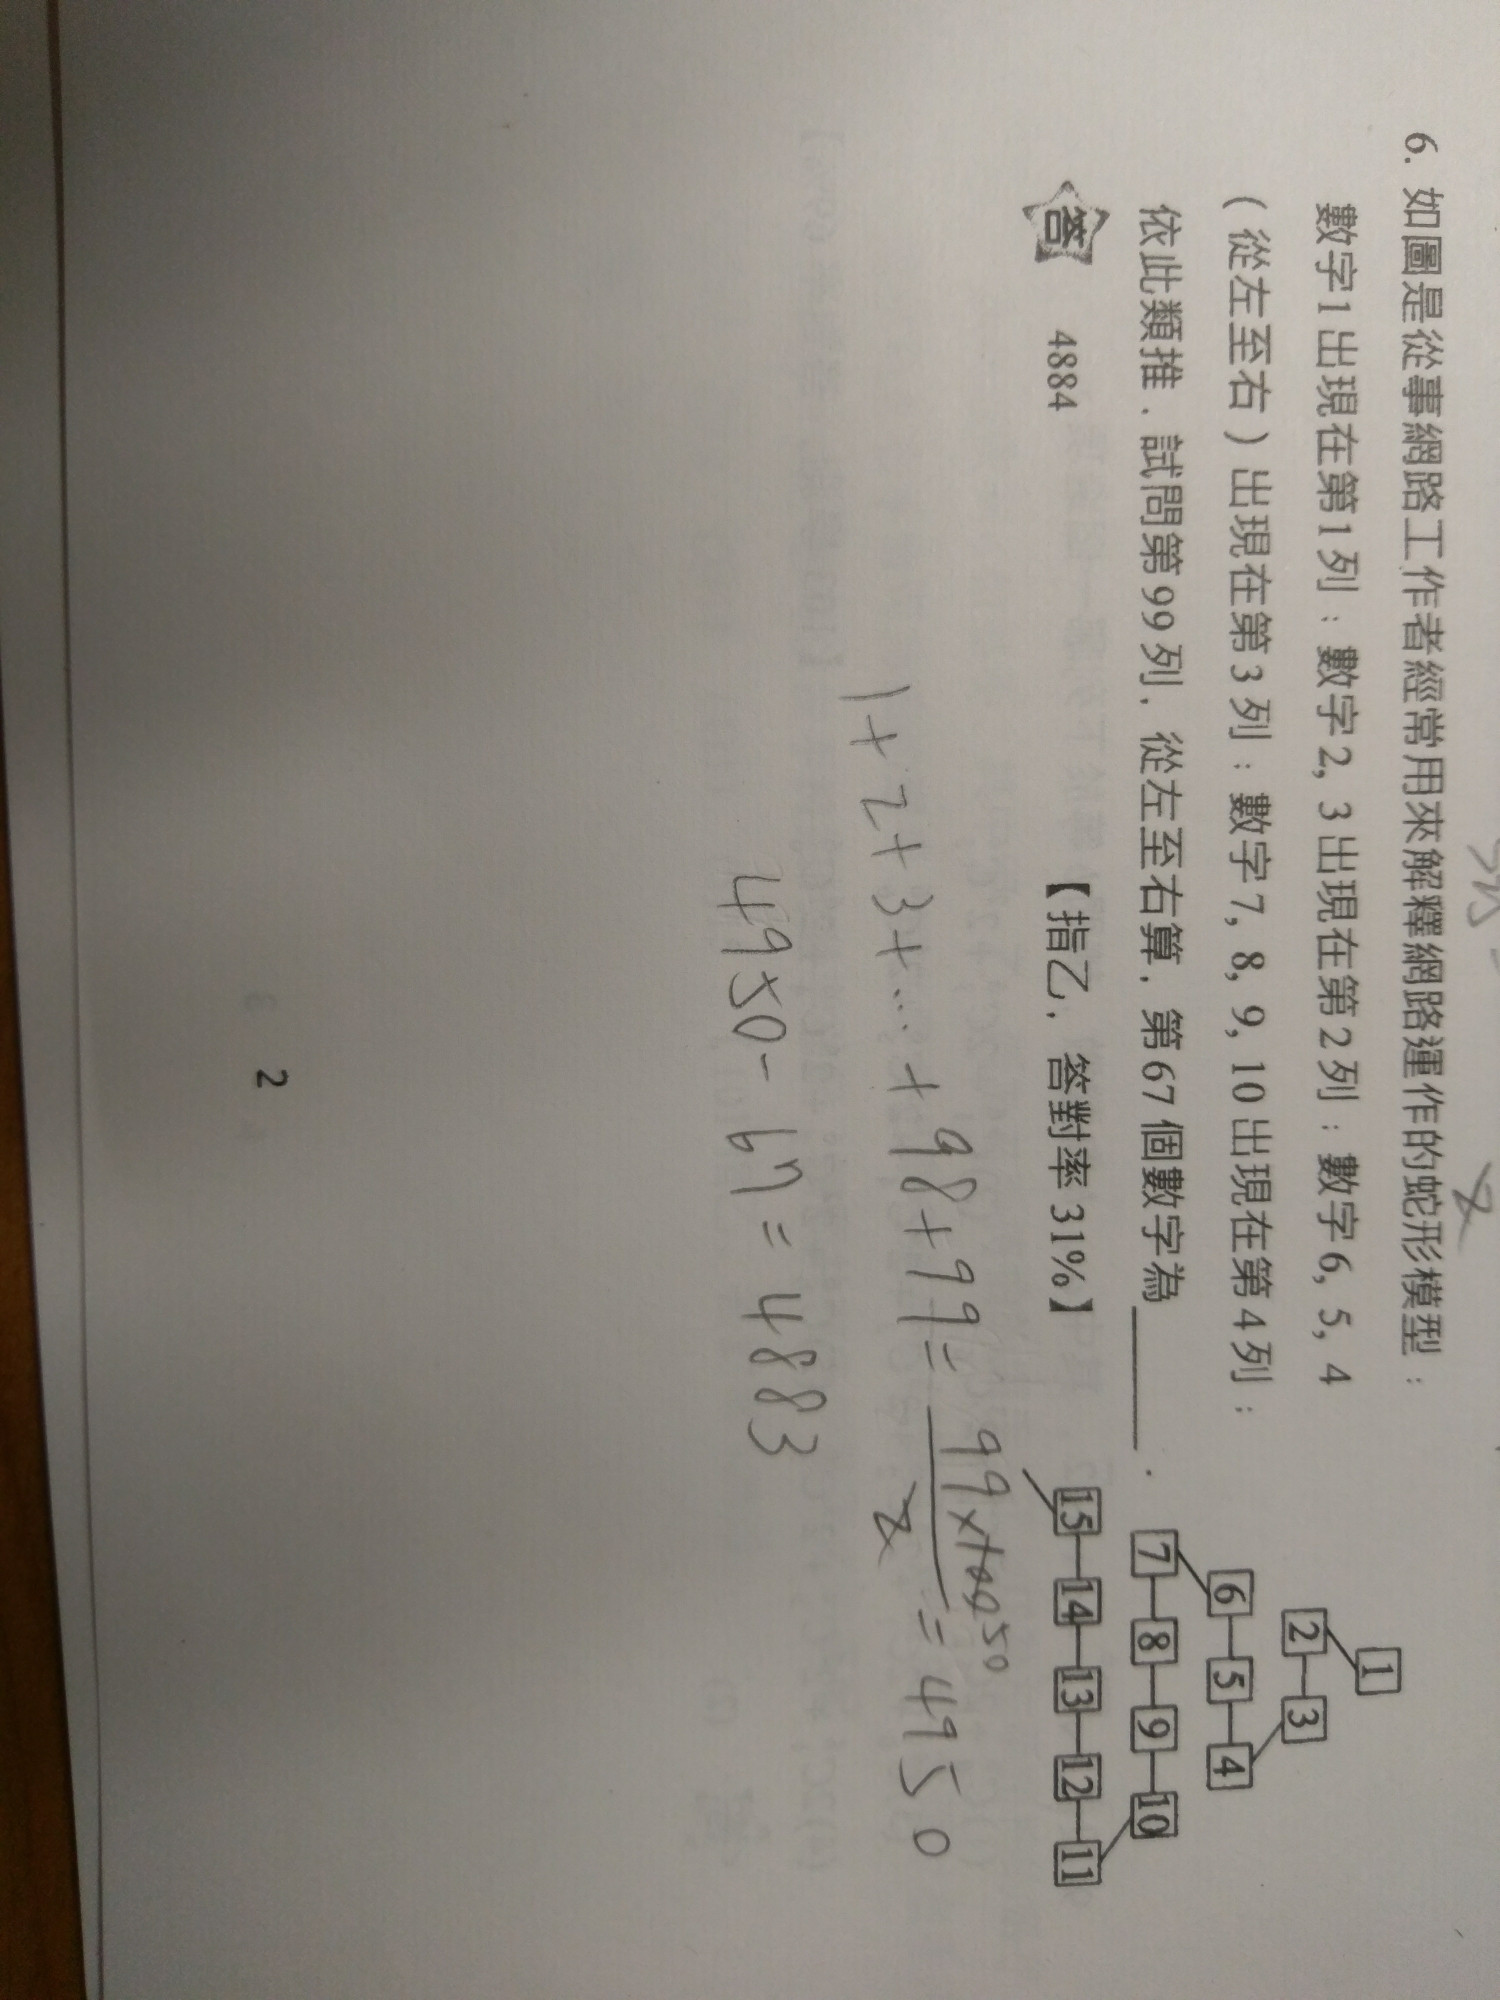 6. 如圖是從事網路工作者經常用來解釋網路運作的蛇形模型：
數字1出現在第1列；數字2, 3出現在第2列；數字6, 5, 4
（從左至右）出現在第3列；數字7, 8, 9, 10出現在第4列；
依此類推．試問第99列，從左至右算，第67個數字為______．
答 4884 【指乙，答對率31%】
1
2 3
6 5 4
7 8 9 10
15 14 13 12 11
1+2+3+...+98+99= 99×100 50 / 2 = 4950
4950-67=4883
2